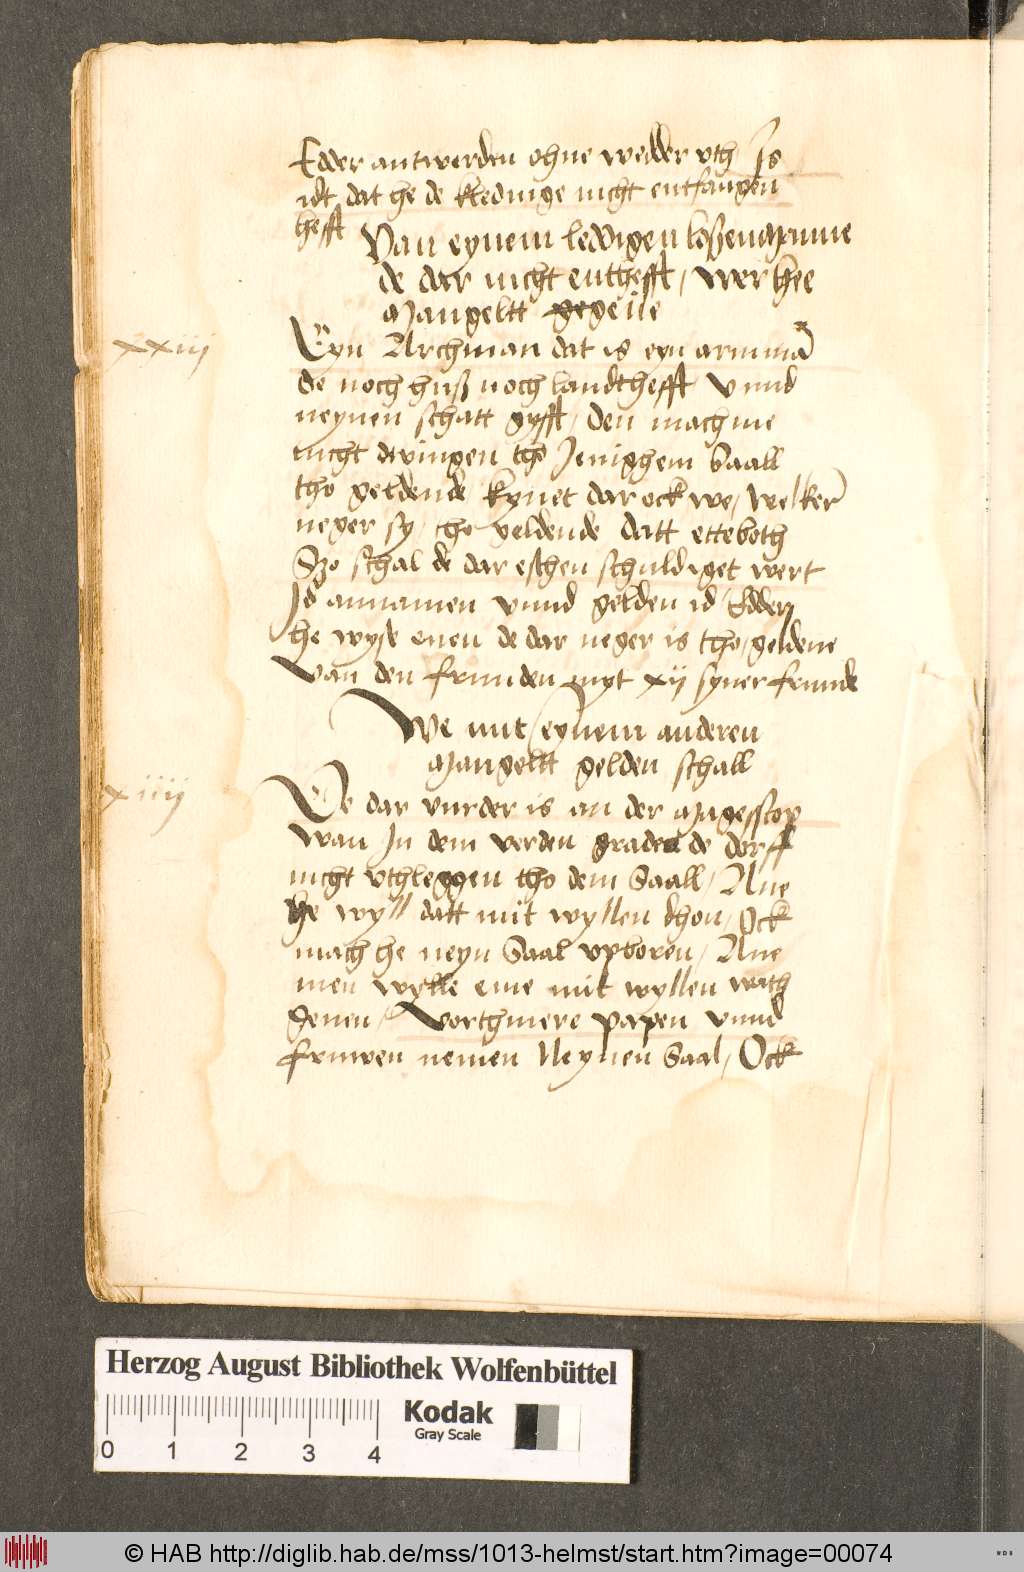 Edder antwerden ohne wedder vth Is
idt dat he de kledinge nicht entfangen
hefft
Van eynem leddigen
de dar nicht enthefft / wer hee
Mangeltt gegeue
xxiij
Eyn Archman dat is eyn arm mā
de noch huß noch landt hefft vnnd
neynen schatt gyfft / den mach me
nicht dwingen tho Jenighem Saall
tho geldende kynet dar ock we / welker
neger sy / tho geldende datt etteboth
Szo schal de dar eschen schuldiget wert
Id annamen vnnd gelden id Edder
he wyse enen de dar neger is tho geldene
van den frunden myt xij syner frunde
We mit eynem anderen
Mangeltt gelden schall
xiiij
De dar vurder is an der Magesscop
wan In dem verden grade de dorff
nicht vthleggen tho dem Saall / Ane
he wyll datt mit wyllen dhon / Ock
mach he neyn Saal vpboren / Ane
men wylle eme mit wyllen wath
geuen / Vorthmere papen vnnd
fruwen nemen Neynen Saal / Ock
Herzog August Bibliothek Wolfenbüttel
Kodak
Gray Scale
0 1 2 3 4
© HAB http://diglib.hab.de/mss/1013-helmst/start.htm?image=00074